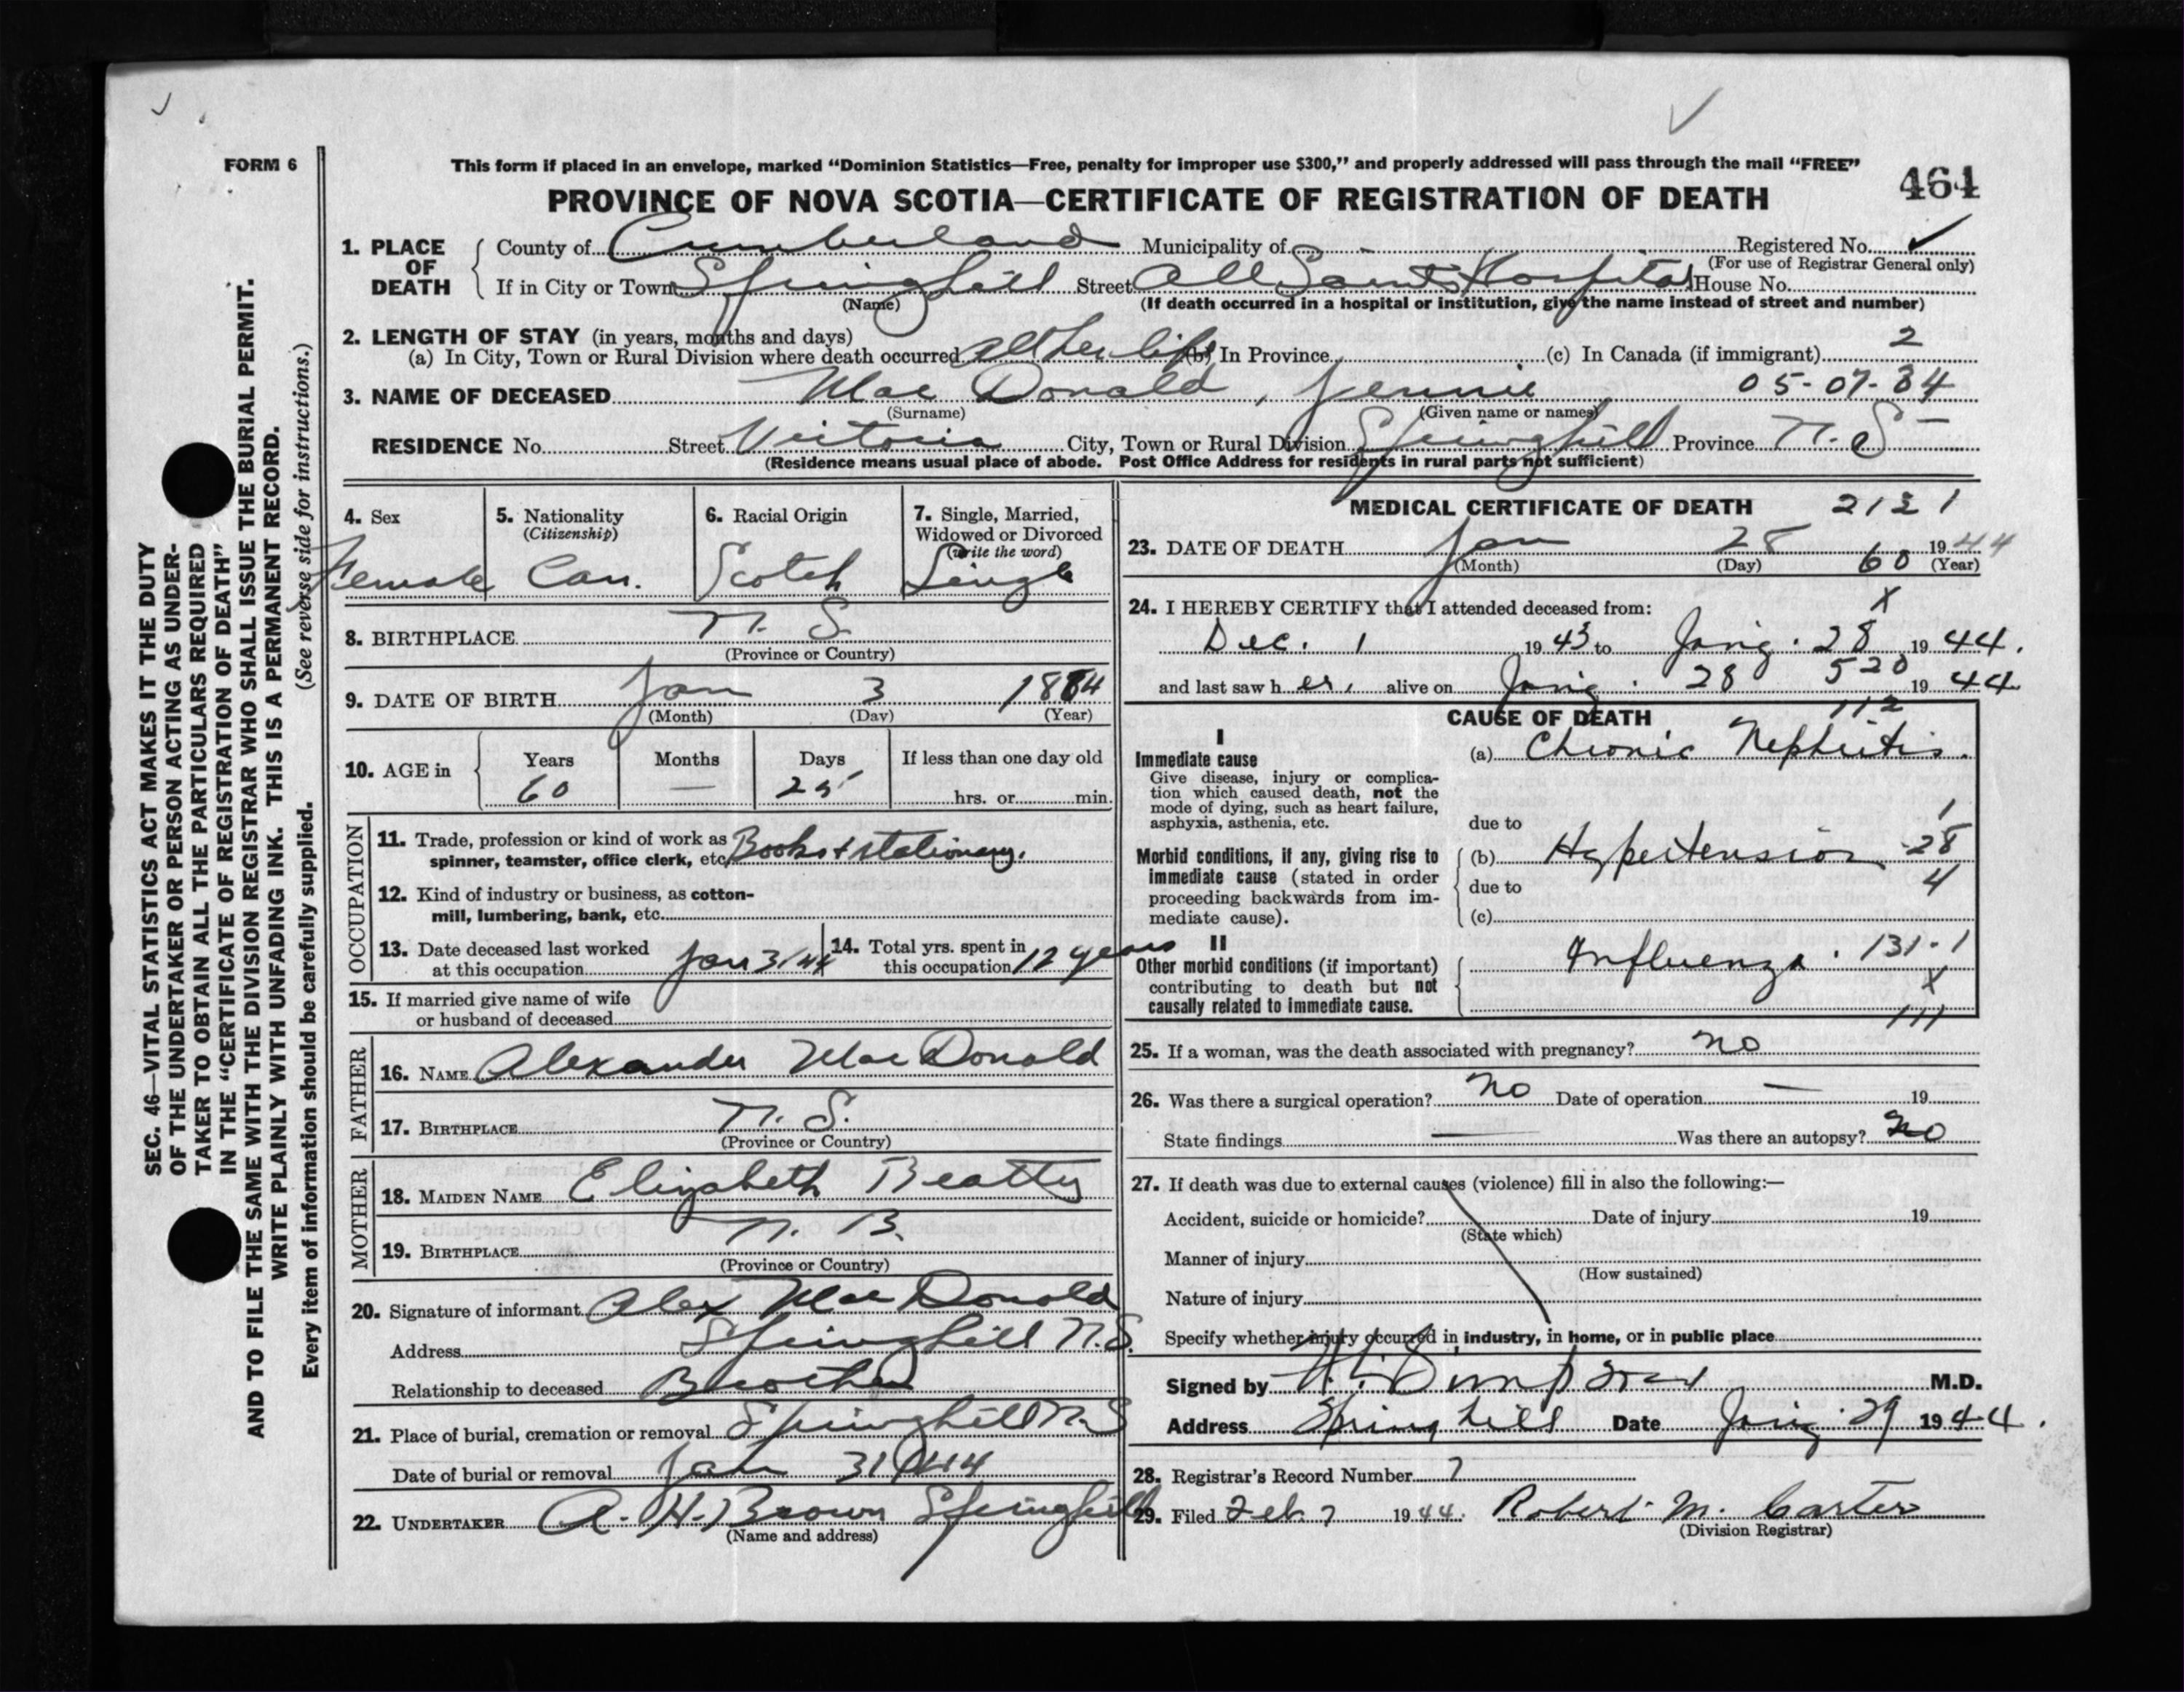 FORM 6
This form if placed in an envelope, marked "Dominion Statistics—Free, penalty for improper use $300," and properly addressed will pass through the mail "FREE"
464
PROVINCE OF NOVA SCOTIA—CERTIFICATE OF REGISTRATION OF DEATH
1. PLACE OF DEATH
County of Cumberland Municipality of Registered No.
(For use of Registrar General only)
If in City or Town Springhill Street All Saints Hospital House No.
(Name) (If death occurred in a hospital or institution, give the name instead of street and number)
2. LENGTH OF STAY (in years, months and days)
2
(a) In City, Town or Rural Division where death occurred all her life (b) In Province (c) In Canada (if immigrant)
3. NAME OF DECEASED Mac Donald, Jennie 05-07-34
(Surname) (Given name or names)
RESIDENCE No. Street Victoria City, Town or Rural Division Springhill Province N. S
(Residence means usual place of abode. Post Office Address for residents in rural parts not sufficient)
4. Sex
Female
5. Nationality
(Citizenship)
Can.
6. Racial Origin
Scotch
7. Single, Married,
Widowed or Divorced
(write the word)
Single
8. BIRTHPLACE N. S.
(Province or Country)
9. DATE OF BIRTH Jan 3 1884
(Month) (Day) (Year)
10. AGE in
Years Months Days If less than one day old
60 — 25 hrs. or min.
OCCUPATION
11. Trade, profession or kind of work as
spinner, teamster, office clerk, etc. Books + stationery.
12. Kind of industry or business, as cotton-
mill, lumbering, bank, etc.
13. Date deceased last worked
at this occupation Jan 3/44
14. Total yrs. spent in
this occupation 12 years
15. If married give name of wife
or husband of deceased
FATHER
16. NAME Alexander MacDonald
17. BIRTHPLACE N. S.
(Province or Country)
MOTHER
18. MAIDEN NAME Elizabeth Beatty
19. BIRTHPLACE N. B.
(Province or Country)
20. Signature of informant Alex MacDonald
Address Springhill N.S.
Relationship to deceased Brother
21. Place of burial, cremation or removal Springhill N.S
Date of burial or removal Jan 31 1944
22. UNDERTAKER A. H. Brown Springhill
(Name and address)
MEDICAL CERTIFICATE OF DEATH 2131
23. DATE OF DEATH Jan 28 1944
(Month) (Day) 60 (Year)
24. I HEREBY CERTIFY that I attended deceased from: X
Dec. 1 1943 to Janry. 28 1944.
and last saw her, alive on Janry. 28 520 1944
CAUSE OF DEATH 112
I
Immediate cause
Give disease, injury or complica-
tion which caused death, not the
mode of dying, such as heart failure,
asphyxia, asthenia, etc.
(a) Chronic Nephritis.
due to 1
Morbid conditions, if any, giving rise to
immediate cause (stated in order
proceeding backwards from im-
mediate cause).
(b) Hypertension 28
due to 4
(c)
II
Other morbid conditions (if important)
contributing to death but not
causally related to immediate cause.
Influenza. 131-1
X
111
25. If a woman, was the death associated with pregnancy? no
26. Was there a surgical operation? No Date of operation — 19
State findings — Was there an autopsy? No
27. If death was due to external causes (violence) fill in also the following:—
Accident, suicide or homicide? Date of injury 19
(State which)
Manner of injury
(How sustained)
Nature of injury
Specify whether injury occurred in industry, in home, or in public place
Signed by M.D.
Address Springhill Date Janry. 29 1944.
28. Registrar's Record Number 7
29. Filed Feb 7 1944. Robert M. Carter
(Division Registrar)
SEC. 46—VITAL STATISTICS ACT MAKES IT THE DUTY
OF THE UNDERTAKER OR PERSON ACTING AS UNDER-
TAKER TO OBTAIN ALL THE PARTICULARS REQUIRED
IN THE "CERTIFICATE OF REGISTRATION OF DEATH"
AND TO FILE THE SAME WITH THE DIVISION REGISTRAR WHO SHALL ISSUE THE BURIAL PERMIT.
WRITE PLAINLY WITH UNFADING INK. THIS IS A PERMANENT RECORD.
Every item of information should be carefully supplied. (See reverse side for instructions.)